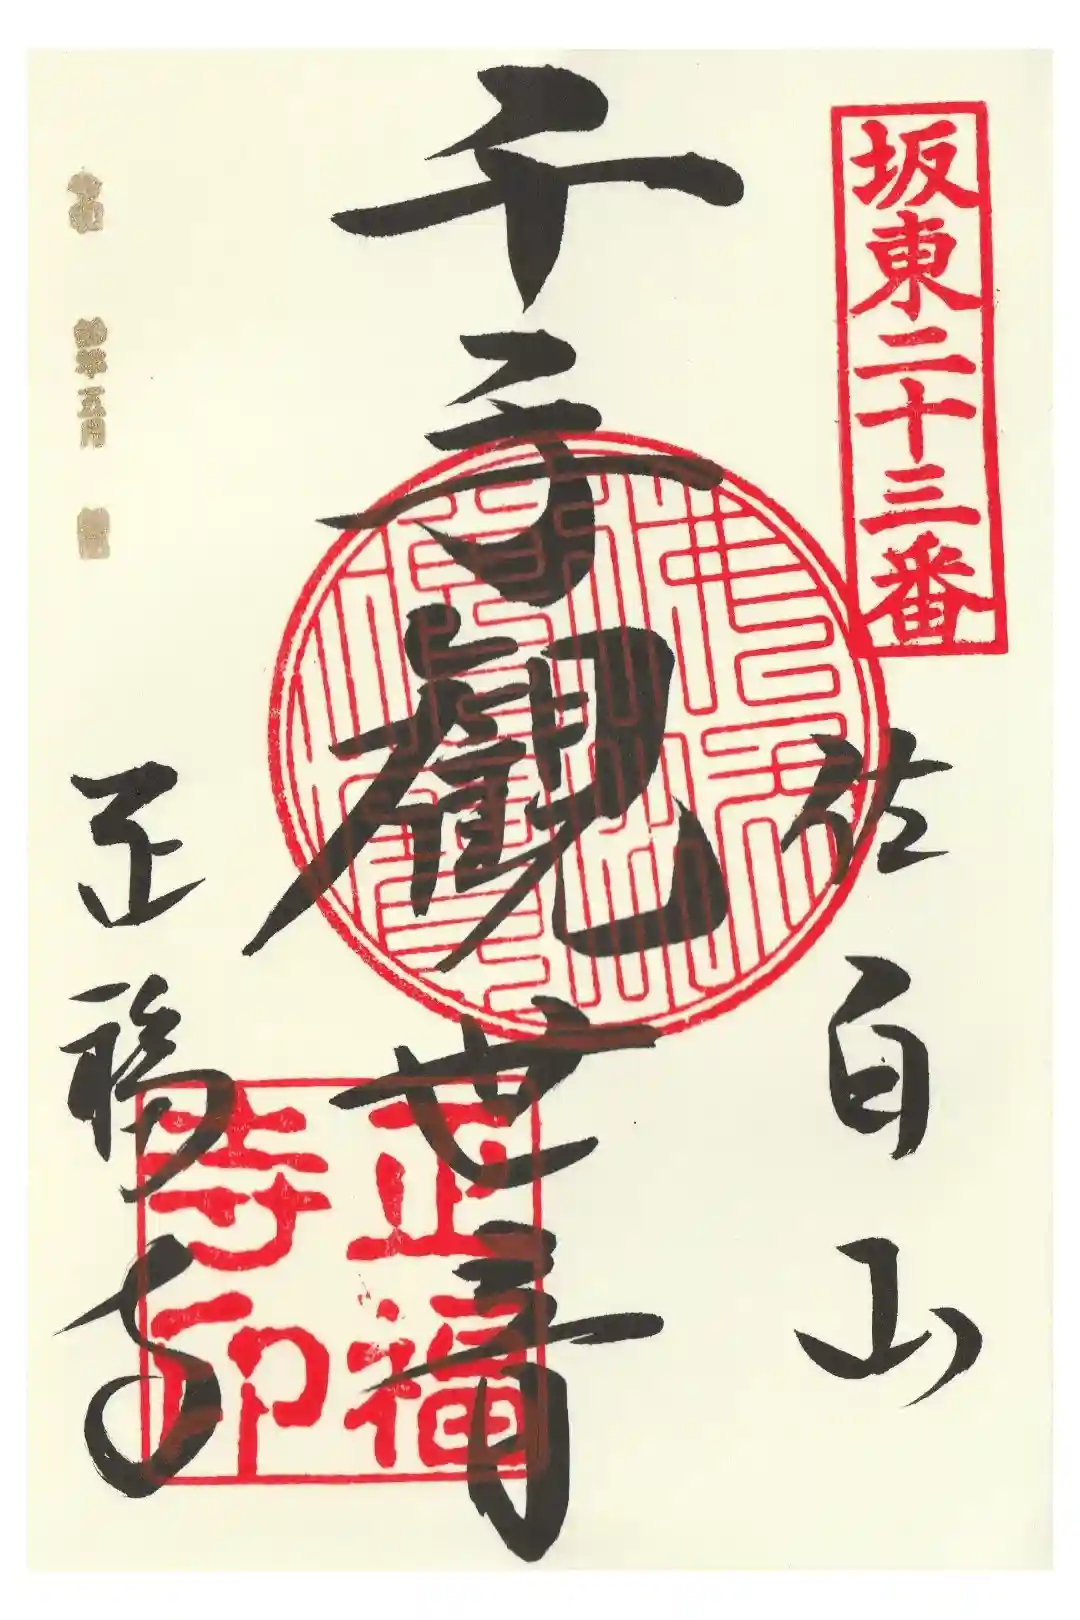 坂東二十三番
佐白山
千手観世音
正福寺
正福
寺印
五月